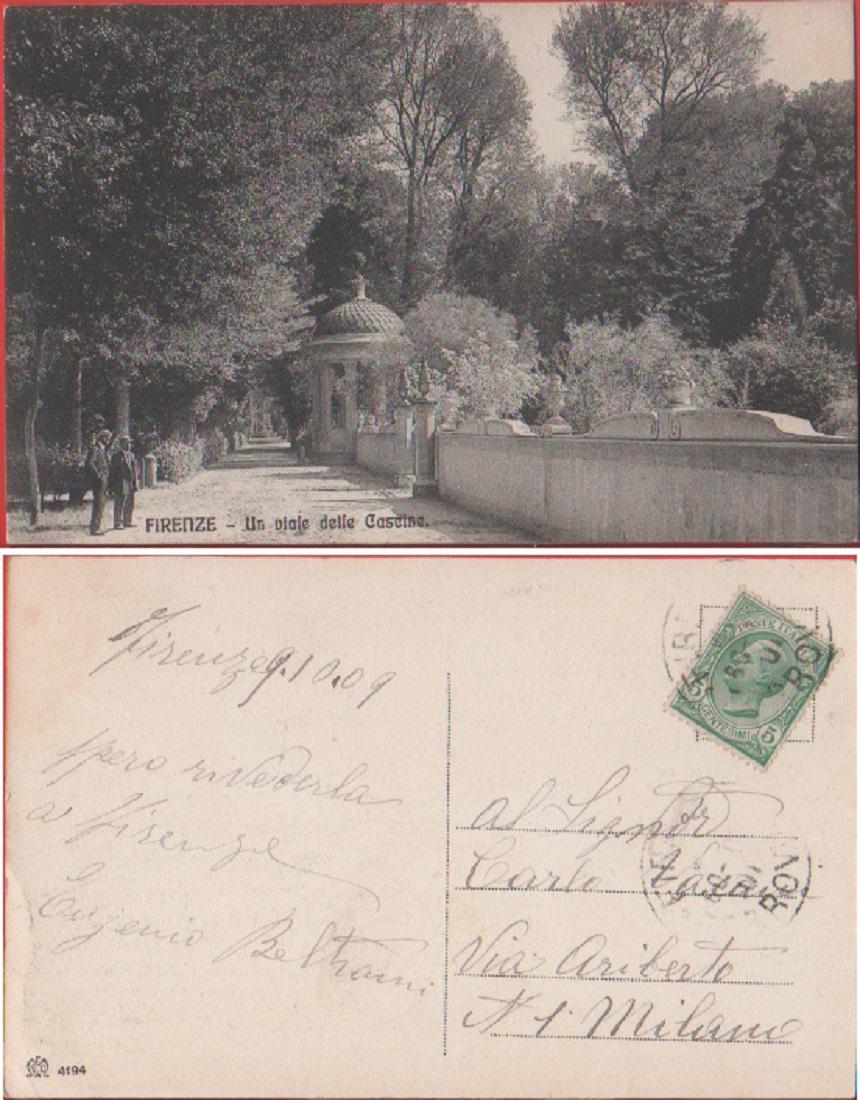 FIRENZE - Un viale delle Cascine.
Firenze 9.10.09
Spero rivederla
a Firenze
Eugenio Beltrami
POSTE ITAL
5 CENTESIMI 5
Al Signor
Carlo
Via Ariberto
N 1. Milano
4194